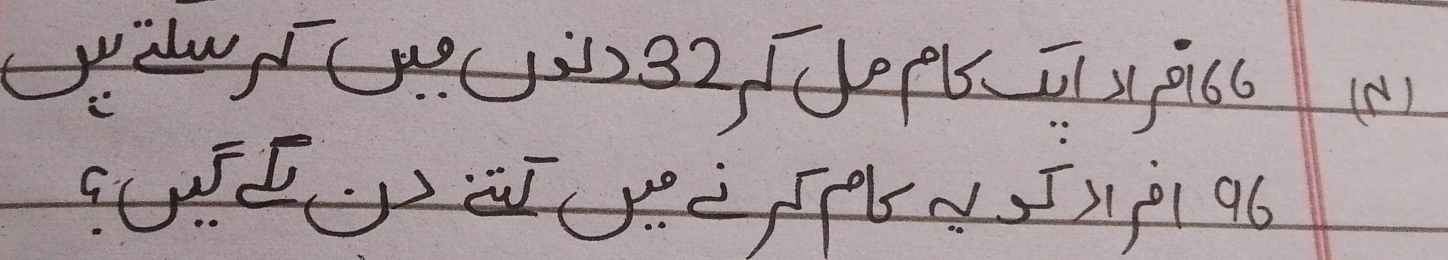 (۸) 66 افراد ایک کام مل کر 32 دنوں میں کر سکتے ہیں
96 افراد کو یہ کام کرنے میں کتنے دن لگے گیں؟